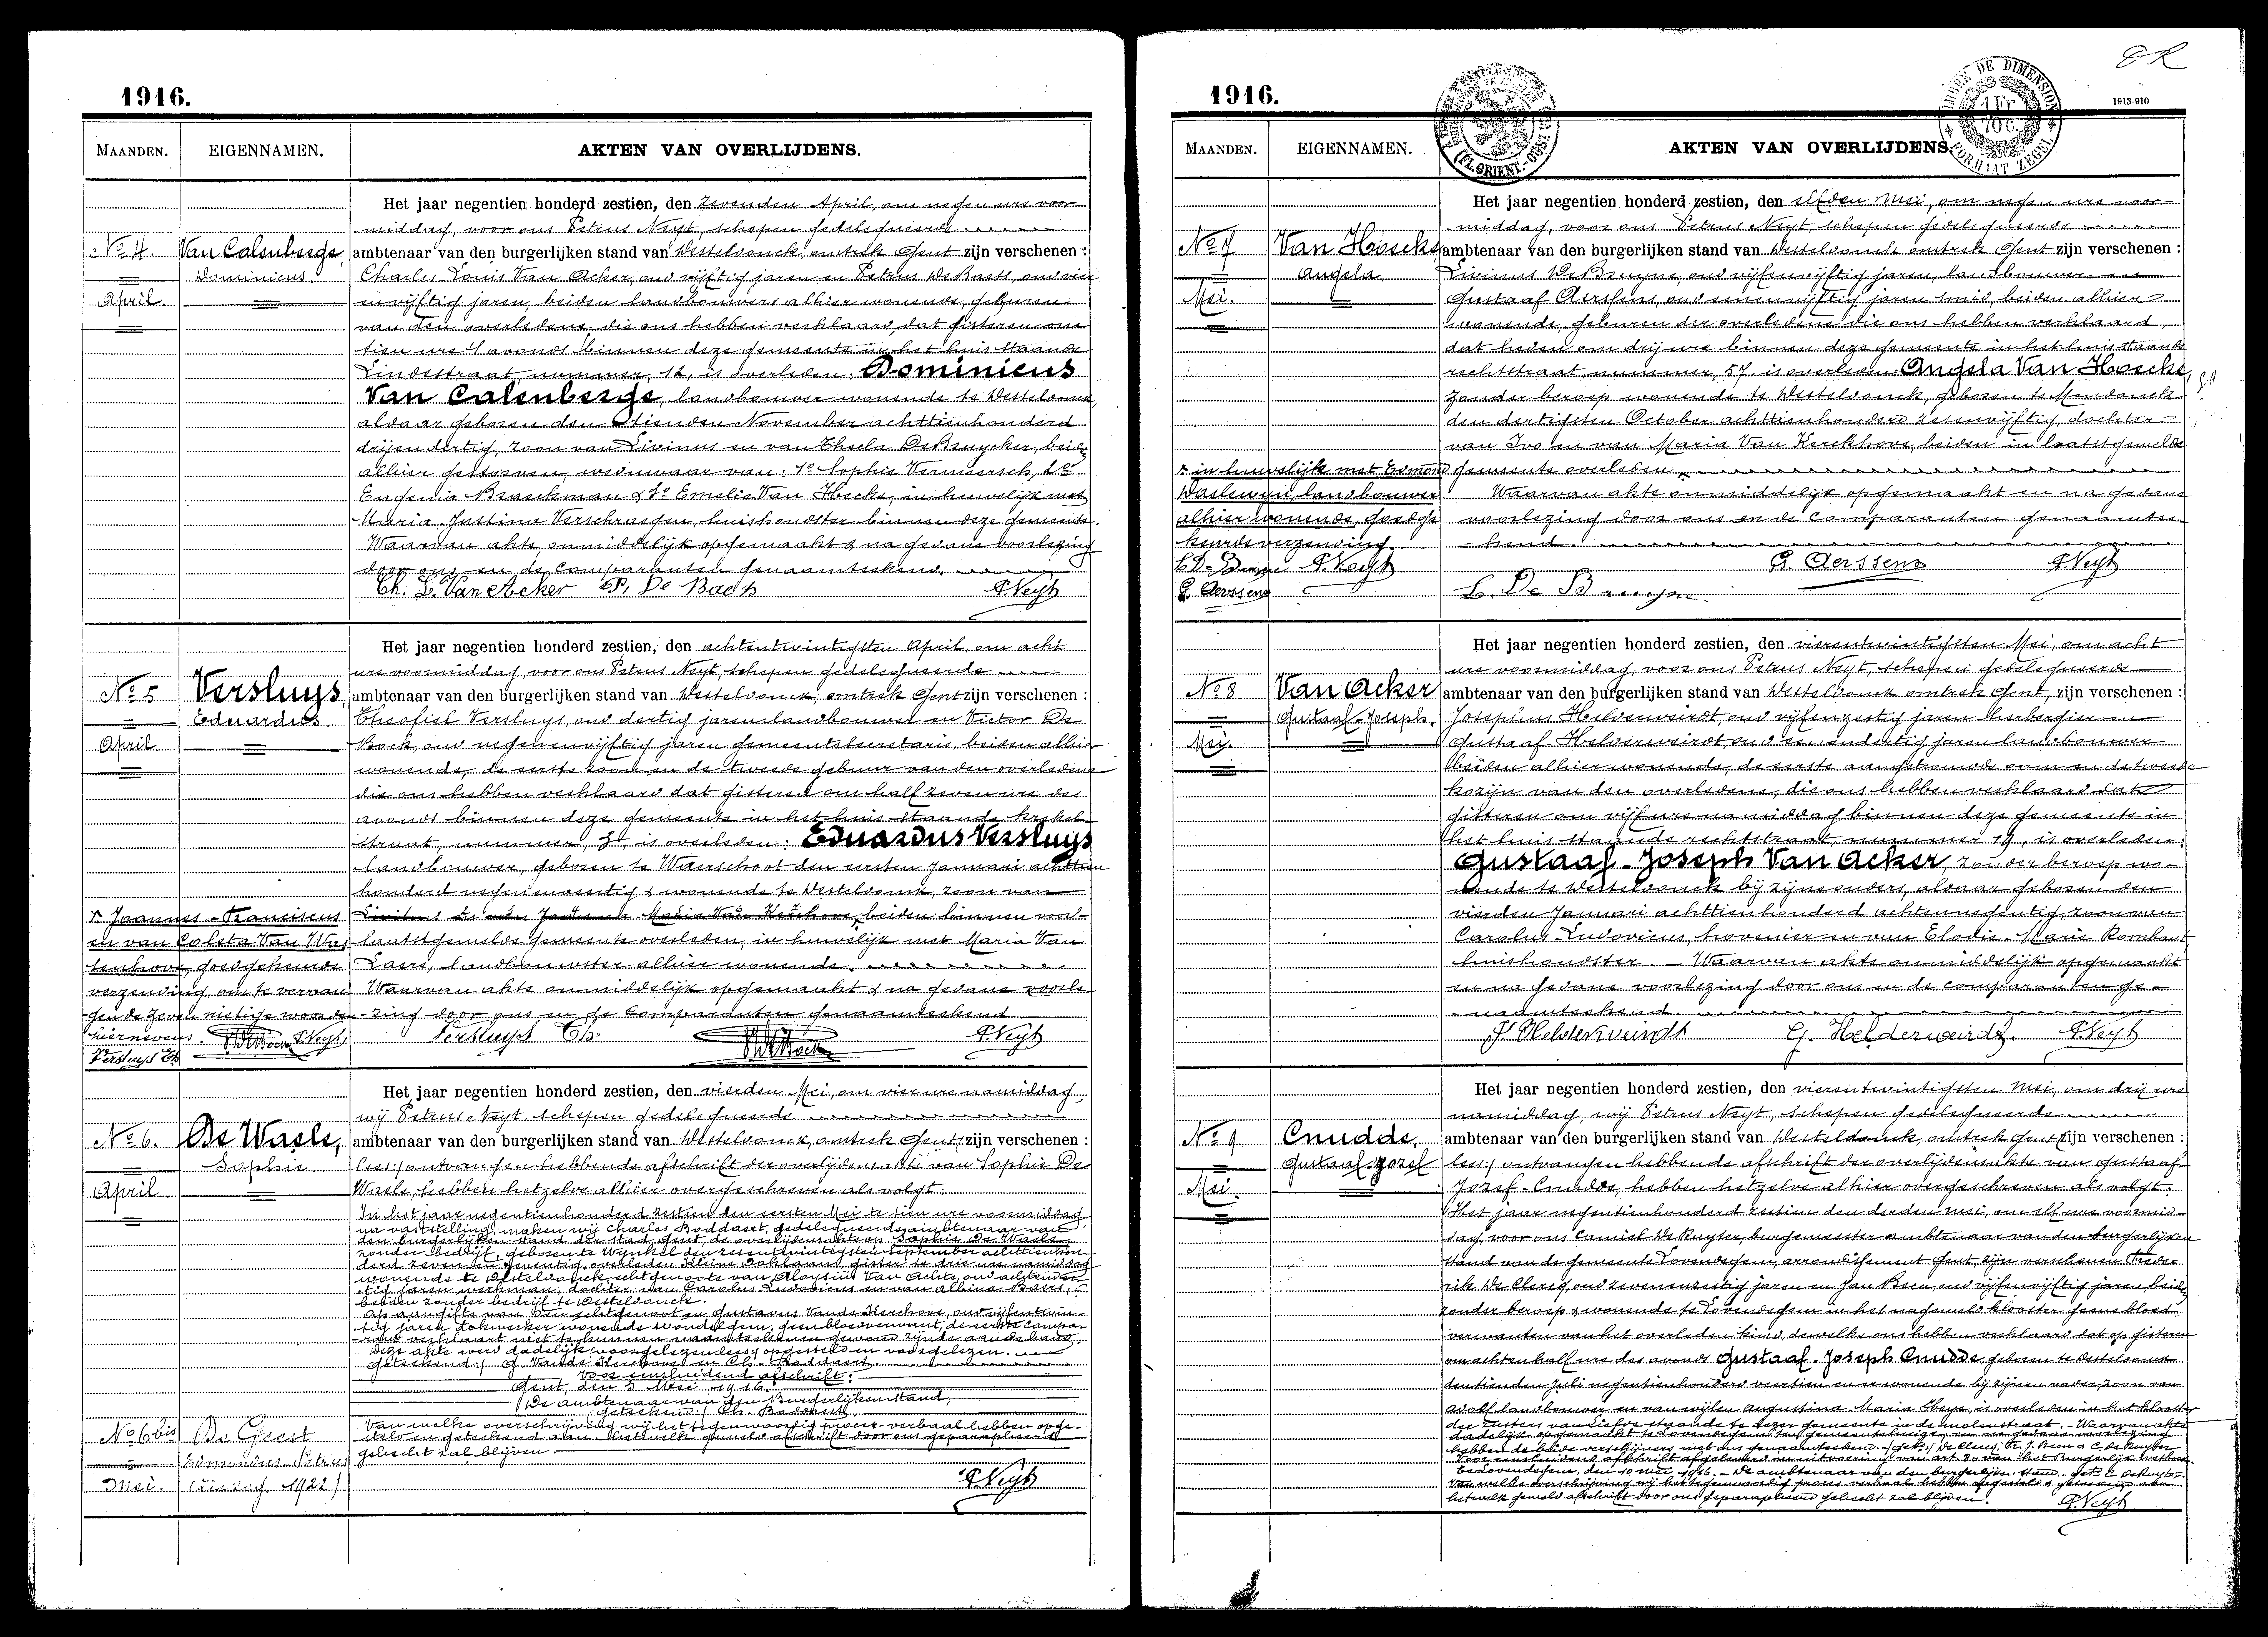 1916.
MAANDEN. EIGENNAMEN. AKTEN VAN OVERLIJDENS.
Het jaar negentien honderd zestien, den zevenden April, om negen ure voor-
middag, voor ons Petrus Neyt, schepen gedelegueerde
No 4. Van Calenberge, ambtenaar van den burgerlijken stand van Westeldonck, omtrek Gent zijn verschenen :
Dominicus Charles Louis Van Acker, oud vijftig jaren en Petrus De Baets, oud vier
April en vijftig jaren, beiden landbouwers alhier wonende, geburen
van den overledene die ons hebben verklaard, dat gisteren om
tien ure 's avonds binnen deze gemeente in het huis staande
Lindestraat, nummer, 12, is overleden: Dominicus
Van Calenberge, landbouwer wonende te Westeldonck,
aldaar geboren den November achttienhonderd
drijendertig, zoon van Livinus en van Thecla De Bruycker, beide
alhier gestorven, weduwaar van: 1o Sophie Vermeersch, 2o
Eugenia Braeckman & 3o Emelie Van Hecke, in huwelijk met
Maria Justina Verschraegen, huishoudster binnen deze gemeente.
Waarvan akte, onmiddelijk opgemaakt & na gedane voorlezing
door ons en de Comparanten genaamteekend.
Ch. L. Van Acker P. De Baets P. Neyt
Het jaar negentien honderd zestien, den achtentwintigsten April, om acht
ure voormiddag, voor ons Petrus Neyt, schepen gedelegueerde
No 5 Versluys, ambtenaar van den burgerlijken stand van Westeldonck, omtrek Gent zijn verschenen :
Eduardus Theofiel Versluys, oud dertig jaren landbouwer en Victor De
April Bock, oud negenenvijftig jaren gemeentesecretaris, beiden alhier
wonende, de eerste zoon en de tweede gebuur van den overledene
die ons hebben verklaard dat gisteren om half zeven ure des
avonds binnen deze gemeente in het huis staande
straat, nummer, is overleden: Eduardus Versluys
landbouwer, geboren te Waerschoot den eersten Januari achttien
honderd negenenveertig & wonende te Westeldonck, zoon van
x Joannes-Franciscus beiden binnen voor-
en van Coleta Van Wae laatstgemelde gemeente overleden, in huwelijk met Maria Van
tenhove, goedgekeurde Laere, landbouwster alhier wonende.
verzending, om te vervan Waarvan akte onmiddelijk opgemaakt & na gedane voorle-
gen de zeven nietige woorden -zing door ons en de Comparanten genaamteekend
hiernevens. P. Neyt Versluys Th. P. Neyt
Versluys Th
Het jaar negentien honderd zestien, den vierden Mei, om vier ure namiddag,
wij Petrus Neyt, schepen gedelegueerde
No 6. De Waele, ambtenaar van den burgerlijken stand van Westeldonck, omtrek Gent, zijn verschenen :
Sophie lees:/ ontvangen hebbende afschrift der overlijdensakte van Sophie De
April Waele, hebben hetzelve alhier overgeschreven als volgt:
In het jaar negentienhonderd zestien den eersten Mei te tien ure voormiddag
na vaststelling, maken wij Charles Boddaert, gedelegueerde ambtenaar van
den burgerlijken stand der stad Gent, de overlijdensakte op Sophie De Waele
zonder bedrijf, geboren te Wynkel den zesentwintigsten September achttienhon
derd zeven en zeventig, overleden Kleine Gothland, gister te drie ure namiddag
wonende te Westeldonck, echtgenoote van Aloysius Van Achte, oud achtender-
tig jaren werkman, dochter van Carolus Ludovicus en van Albina Baert,
beiden zonder bedrijf te Westeldonck.
Op aangifte van den echtgenoot en Gustavus Vande Kerchove, oud vijfentwin-
tig jaren dokwerker wonende Wondelgem, geen bloedverwant, de eerste compa-
rant verklaart niet te kunnen naamteekenen gewond zijnde aan de hand.
Deze akte werd dadelijk voorgelezen lees:/ opgesteld en voorgelezen.
Geteekend:/ G. Vande Kerchove en Ch. Boddaert.
Voor eensluidend afschrift:
Gent, den 3 Mei 1916.
De ambtenaar van den Burgerlijkenstand,
geteekend:/ Ch. Boddaert.
No 6bis De Geest Van welke overschrijving wij het tegenwoordig proces-verbaal hebben opge-
steld en geteekend aan hetwelk gemeld afschrift door ons geparapheerd
Edmondus Petrus gehecht zal blijven
Mei. (zie reg. 1922) P. Neyt
1916.
1913-910
1 Fr.
10 c.
MAANDEN. EIGENNAMEN. AKTEN VAN OVERLIJDENS.
Het jaar negentien honderd zestien, den elfden Mei, om negen ure voor-
middag, voor ons Petrus Neyt, schepen gedelegueerde
No 7 Van Hoecke, ambtenaar van den burgerlijken stand van Westeldonck omtrek Gent zijn verschenen :
Angela Livinus De Bruyne, oud vijfenvijftig jaren, landbouwer en
Mei. Gustaaf Aerssens, oud eenenvijftig jaren smid, beiden alhier
wonende, geburen der overledene die ons hebben verklaard,
dat heden om drij ure binnen deze gemeente in het huis staande
rechtstraat nummer, 57 is overleden: Angela Van Hoecke,
zonder beroep wonende te Westeldonck, geboren te Mendonck
den dertigsten October achttienhonderd zesenvijftig, dochter
van Ivo en van Maria Van Kerckhove, beiden in laatstgemelde
x in huwelijk met Edmond gemeente overleden.
Waelewyn, landbouwer Waarvan akte onmiddelijk opgemaakt en na gedane
alhier wonende, goedge voorlezing door ons en de Comparanten genaamtee-
keurde verzending. -kend.
P. Neyt G. Aerssens P. Neyt
G. Aerssens L. De Bruyne.
Het jaar negentien honderd zestien, den vierentwintigsten Mei, om acht
ure voormiddag, voor ons Petrus Neyt, schepen gedelegueerde
No 8 Van Acker ambtenaar van den burgerlijken stand van Westeldonck omtrek Gent, zijn verschenen :
Gustaaf-Joseph. Josephus Helderweirdt, oud vijfenzestig jaren herbergier en
Mei. Gustaaf Helderweirdt, oud eenendertig jaren landbouwer
beiden alhier wonende, de eerste aangetrouwde oom en de tweede
kozijn van den overledene, die ons hebben verklaard dat
gisteren om vijf ure namiddag binnen deze gemeente in
het huis staande rechtstraat, nummer 19, is overleden:
Gustaaf-Joseph Van Acker, zonder beroep wo-
nende te Westeldonck bij zijne ouders, aldaar geboren den
vierden Januari achttienhonderd achtennegentig, zoon van
Carolus-Ludovicus, hovenier en van Elodie-Marie Rombaut
huishoudster. — Waarvan akte onmiddelijk opgemaakt
en na gedane voorlezing door ons en de comparanten ge-
naamteekend.
J. Helderweirdt G. Helderweirdt. P. Neyt
Het jaar negentien honderd zestien, den vierentwintigsten Mei, om drij ure
namiddag, wij Petrus Neyt, schepen gedelegueerde
No 9 Cnudde, ambtenaar van den burgerlijken stand van Westeldonck, omtrek Gent zijn verschenen :
Gustaaf-Jozef lees:/ ontvangen hebbende afschrift der overlijdensakte van Gustaaf-
Mei. Jozef-Cnudde, hebben hetzelve alhier overgeschreven als volgt:
Het jaar negentienhonderd zestien den derden Mei, om elf ure voormid-
dag, voor ons Camiel De Ruyter burgemeester ambtenaar van den burgerlijken
stand van de gemeente Lovendegem, arrondissement Gent, zijn verschenen Frede-
rik De Clercq, oud tweeenzestig jaren en Jan Baen, oud vijfenvijftig jaren beide
zonder beroep & wonende te Lovendegem in het nagemelde klooster geene bloed-
verwanten van het overleden kind, dewelke ons hebben verklaard dat op gisteren
om achtenhalf ure des avonds Gustaaf-Joseph Cnudde geboren te Westeldonck
den tienden Juli negentienhonderd veertien en er wonende bij zijnen vader, zoon van
Adolf landbouwer en van wijlen Augustina Maria Heys, is overleden in het klooster
der zusters van Liefde staande te dezer gemeente in de molenstraat. - Waarvan akte
dadelijk opgemaakt te Lovendegem ten gemeentehuize, en na gedane voorlezing
hebben de beide verschijners met ons genaamteekend.
te Lovendegem, den 10 Mei 1916. - De ambtenaar van den Burgerlijken Stand. - get. C. De Ruyter
Van welke overschrijving wij het tegenwoordig proces-verbaal hebben opgesteld & geteekend aan
hetwelk gemeld afschrift door ons geparapheerd gehecht zal blijven. P. Neyt